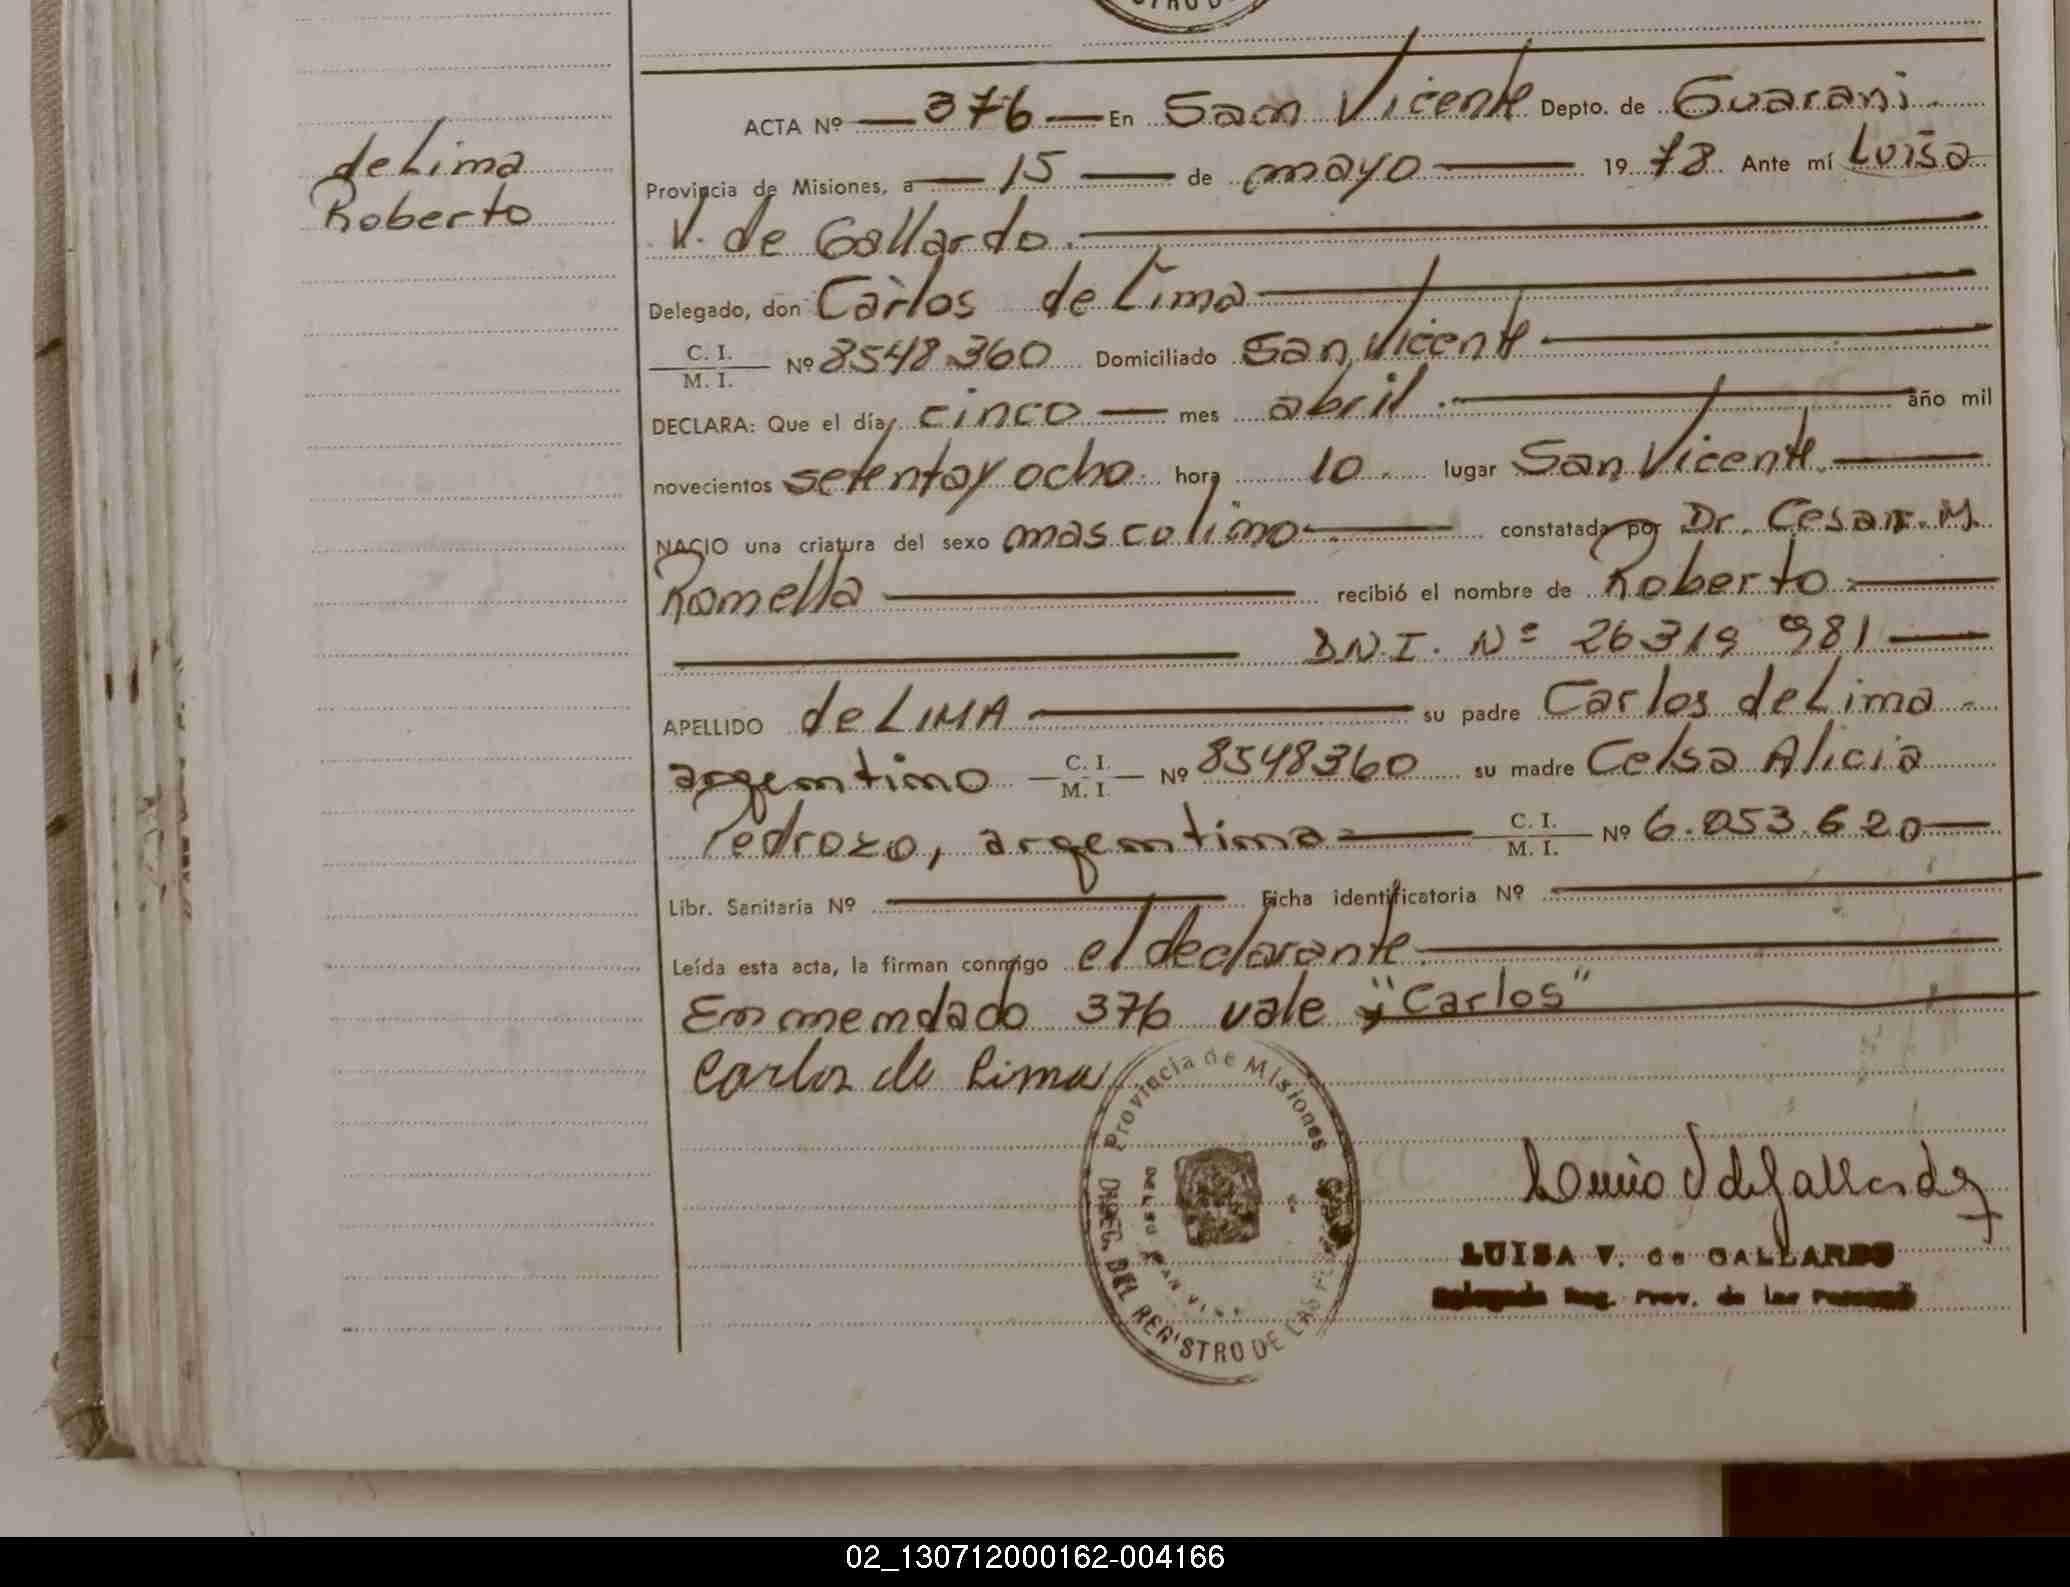 STRO D
ACTA Nº 376 En San Vicente Depto. de Guaraní
Provincia de Misiones, a 15 de mayo 1978. Ante mí Luisa
V. de Gallardo.
de Lima
Roberto
Delegado, don Carlos de Lima
C. I.
M. I. Nº 8548360 Domiciliado San Vicente
DECLARA: Que el día, cinco mes abril. año mil
novecientos setenta y ocho. hora 10. lugar San Vicente.
NACIO una criatura del sexo masculino constatada por Dr. Cesar M.
Romella recibió el nombre de Roberto
D.N.I. Nº 26319 981
APELLIDO de LIMA su padre Carlos de Lima
argentino C. I. M. I. Nº 8548360 su madre Celsa Alicia
Pedrozo, argentina C. I. M. I. Nº 6.053.620
Libr. Sanitaria Nº Ficha identificatoria Nº
Leída esta acta, la firman conmigo el declarante
Enmendado 376 vale y "Carlos"
Carlos de Lima
Provincia de Misiones
DIREC. DEL REGISTRO DE LAS
Luisa V de Gallardo
LUISA V. de GALLARDO
Delegada Reg. Prov. de las Personas
02_130712000162-004166